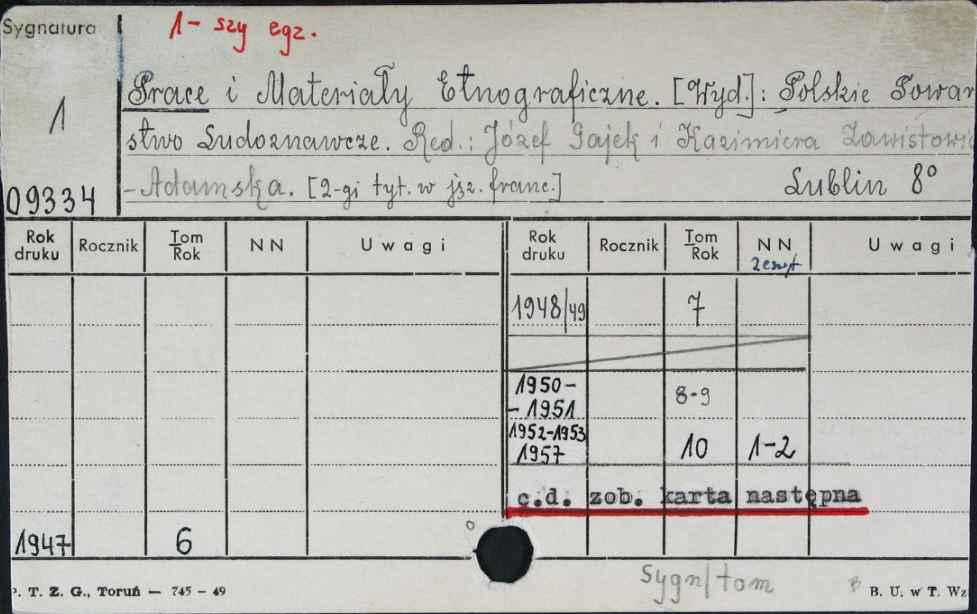 Sygnatura 1-szy egz.
Prace i Materiały Etnograficzne. [Wyd.]: Polskie Towar
1 stwo Ludoznawcze. Red.: Józef Gajek i Kazimiera Zawistowi
09334 -Adamska. [2-gi tyt. w jęz. franc.] Lublin 8°
Rok druku Rocznik Tom Rok N N U w a g i Rok druku Rocznik Tom Rok N N zeszyt U w a g i
1948/49 7
1950-
-1951 8-9
1952-1953
1957 10 1-2
c.d. zob. karta następna
1947 6
Sygn/tom
P. T. Z. G., Toruń — 745 — 49 B. U. w T. Wz